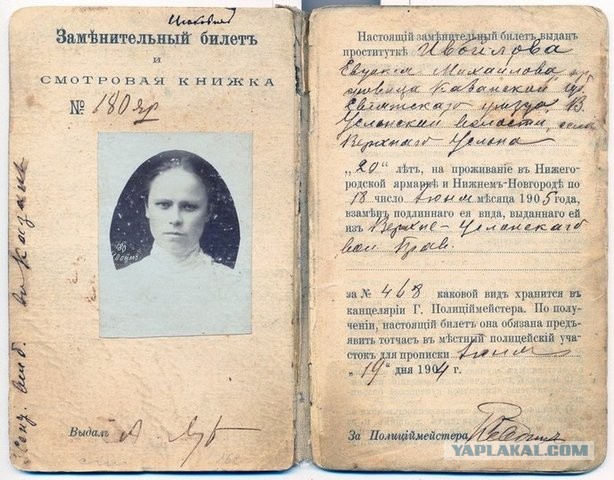 Замѣнительный билетъ
и
СМОТРОВАЯ КНИЖКА
№ 180
Выдалъ
Настоящій замѣнительный билетъ выданъ
проституткѣ Ивойлова
Евдокия Михайлова
Казанской
Свіяжскаго уѣзда, В.
Услонской волости, села
Верхняго Услона
„20" лѣтъ, на проживаніе въ Нижего-
родской ярмаркѣ и Нижнемъ-Новгородѣ по
18 число Іюня мѣсяца 1905 года,
взамѣнъ подлиннаго ея вида, выданнаго ей
изъ Верхне-Услонскаго
вол. Прав.
за № 468 каковой видъ хранится въ
канцеляріи Г. Полиціймейстера. По полу-
ченіи, настоящій билетъ она обязана предъ-
явить тотчасъ въ мѣстный полицейскій уча-
стокъ для прописки Іюня
„19" дня 1904 г.
За Полиціймейстера
YAPLAKAL.COM